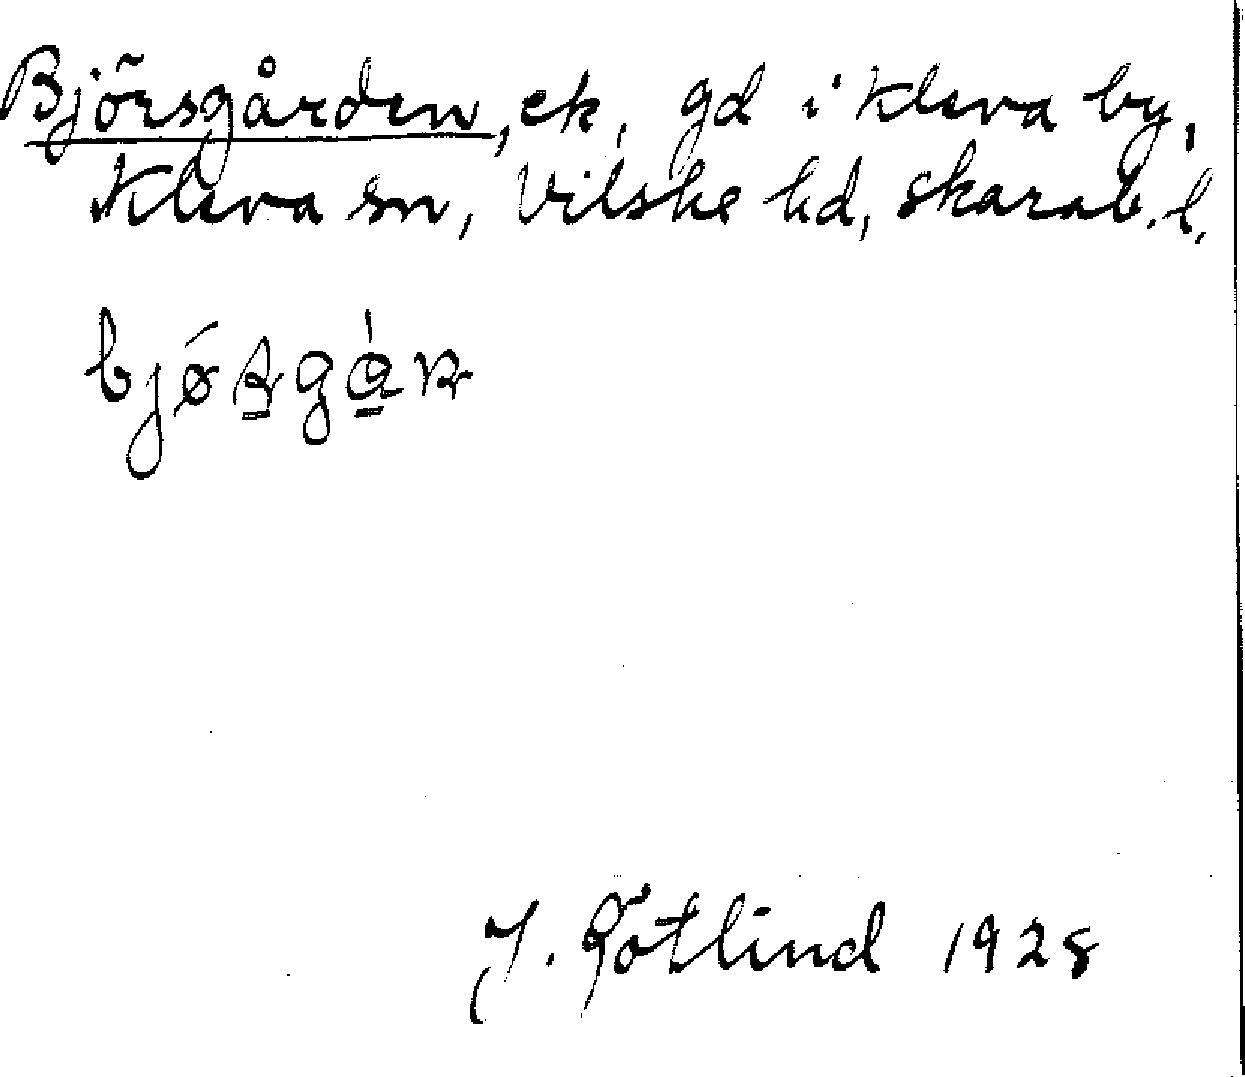 Björsgården, ek, gd i Kleva by,
Kleva sn, Vilske hd, Skarab. l.
J. Götlind 1928